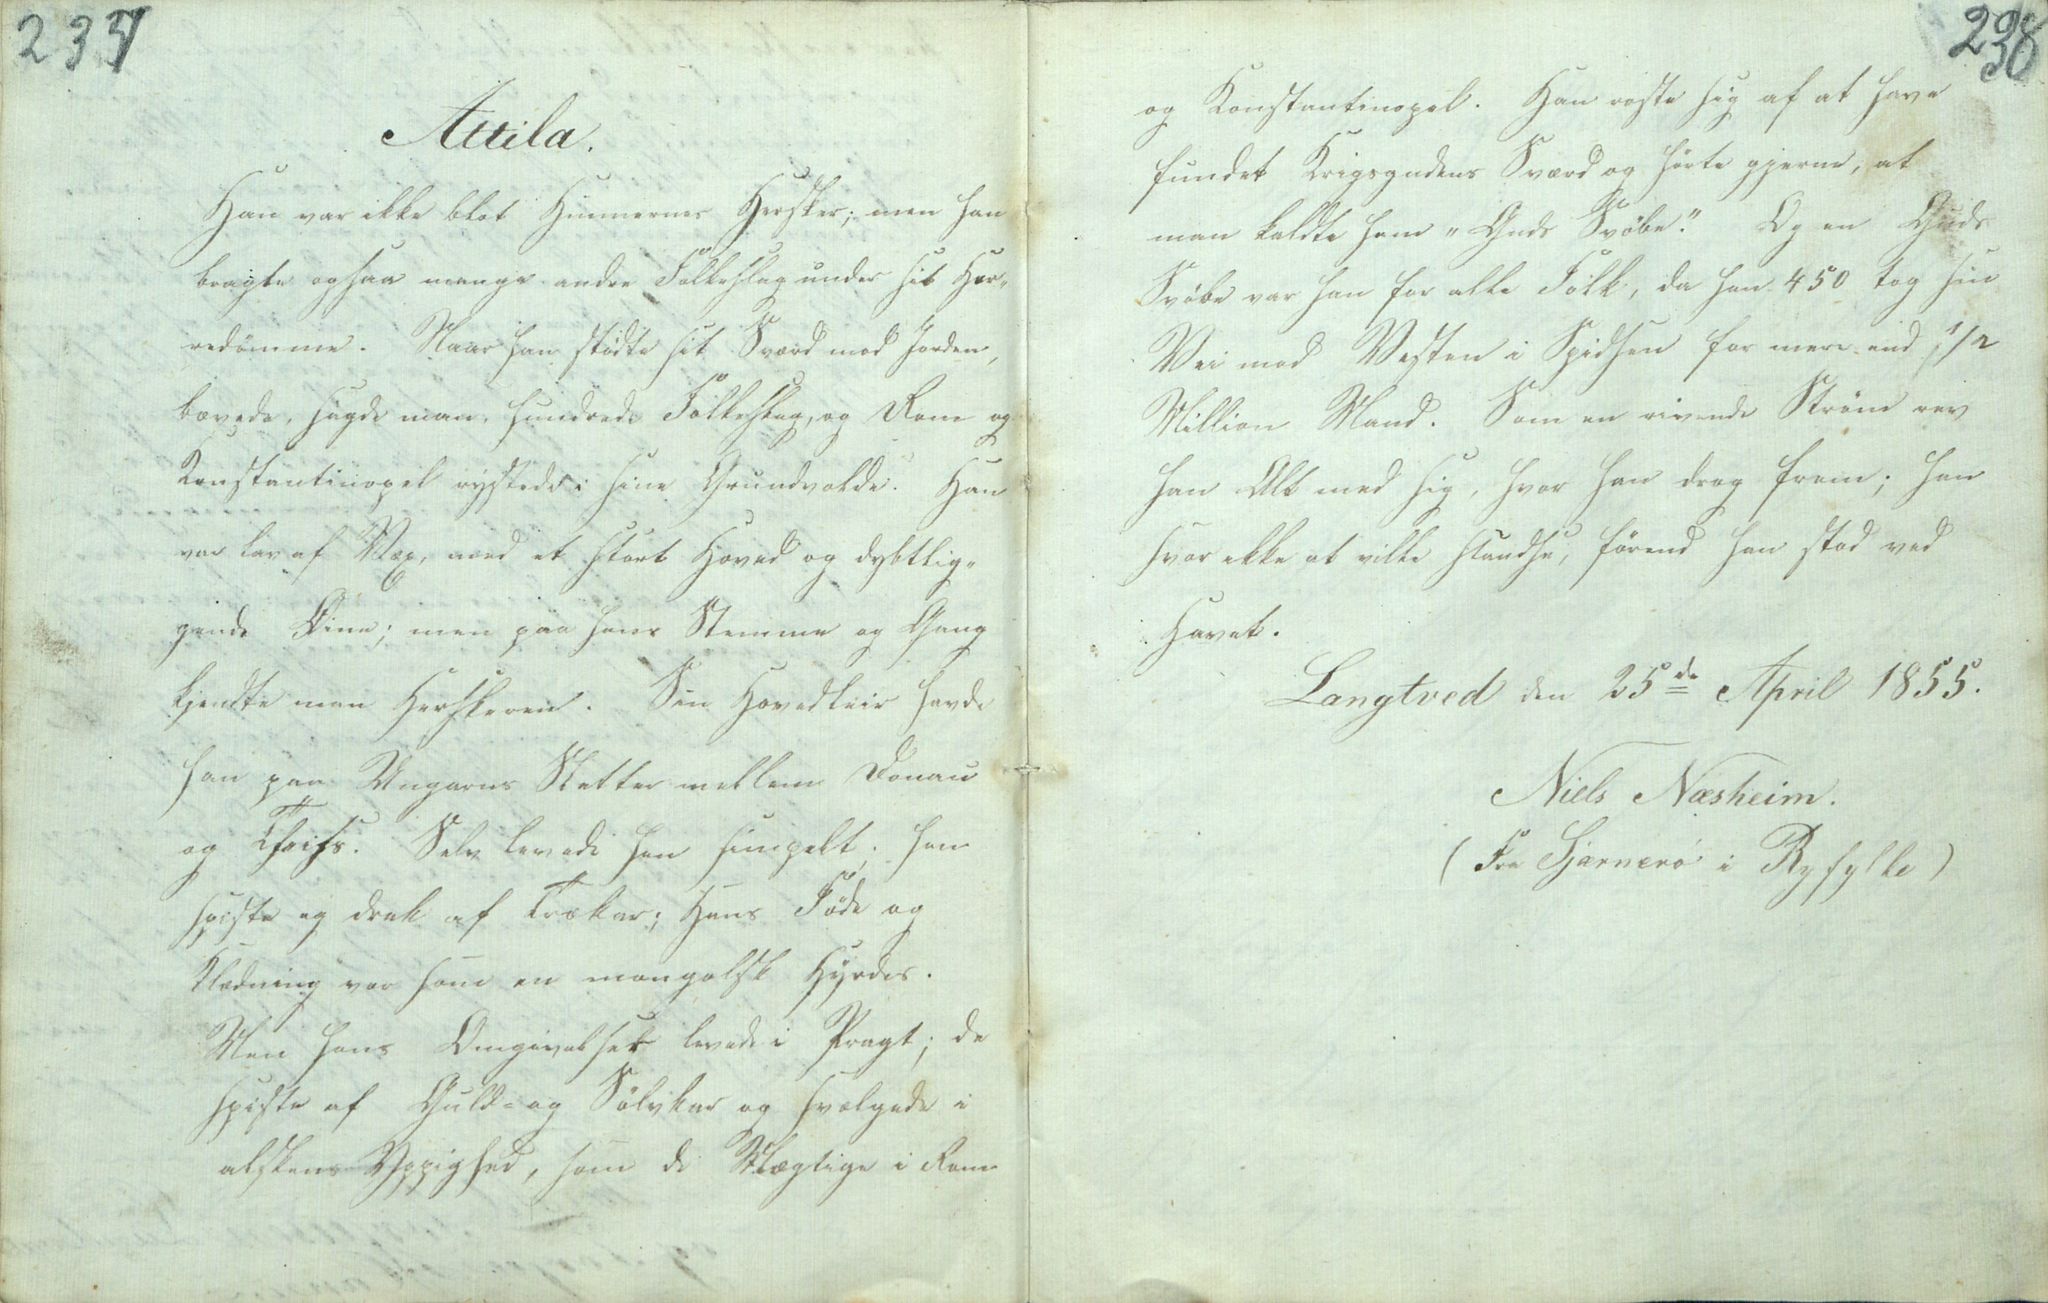 237
Attila.
Han var ikke blot Hunnernes Hersker; men han
bragte ogsaa mange andre Folkeslag under sit Her-
redömme. Naar han stødte sit Sværd mod Jorden,
bævede, sagde man, hundrede Folkeslag, og Rom og
Konstantinopel rystede i sine Grundvolde. Han
var lav af Væx, med et stort Hoved og dybtlig-
gende Øine; men paa hans Stemme og Gang
kjendte man Herskeren. Sin Hovedleir havde
han paa Ungarns Sletter mellem Donau
og Theiss. Selv levede han simpelt; han
spiste og drak af Trækar; Hans Föde og
Klædning var som en mongolsk Hyrdes.
Men hans Omgivelser levede i Pragt; de
spiste af Guld- og Sölvkar og svælgede i
alskens Yppighed, som de Mægtige i Rom
238
og Konstantinopel. Han roste sig af at have
fundet Krigsgudens Sværd og hörte gjerne, at
man kaldte ham "Guds Svöbe". Og en Guds
Svöbe var han for alle Folk, da han 450 tog sin
Vei mod Vesten i Spidsen for mere end 1/2
Million Mand. Som en rivende Ström rev
han Alt med sig, hvor han drog frem; han
svor ikke at ville standse, förend han stod ved
Havet.
Langtved den 25de April 1855.
Niels Næsheim.
(Fra Sjærnerö i Ryfylke)